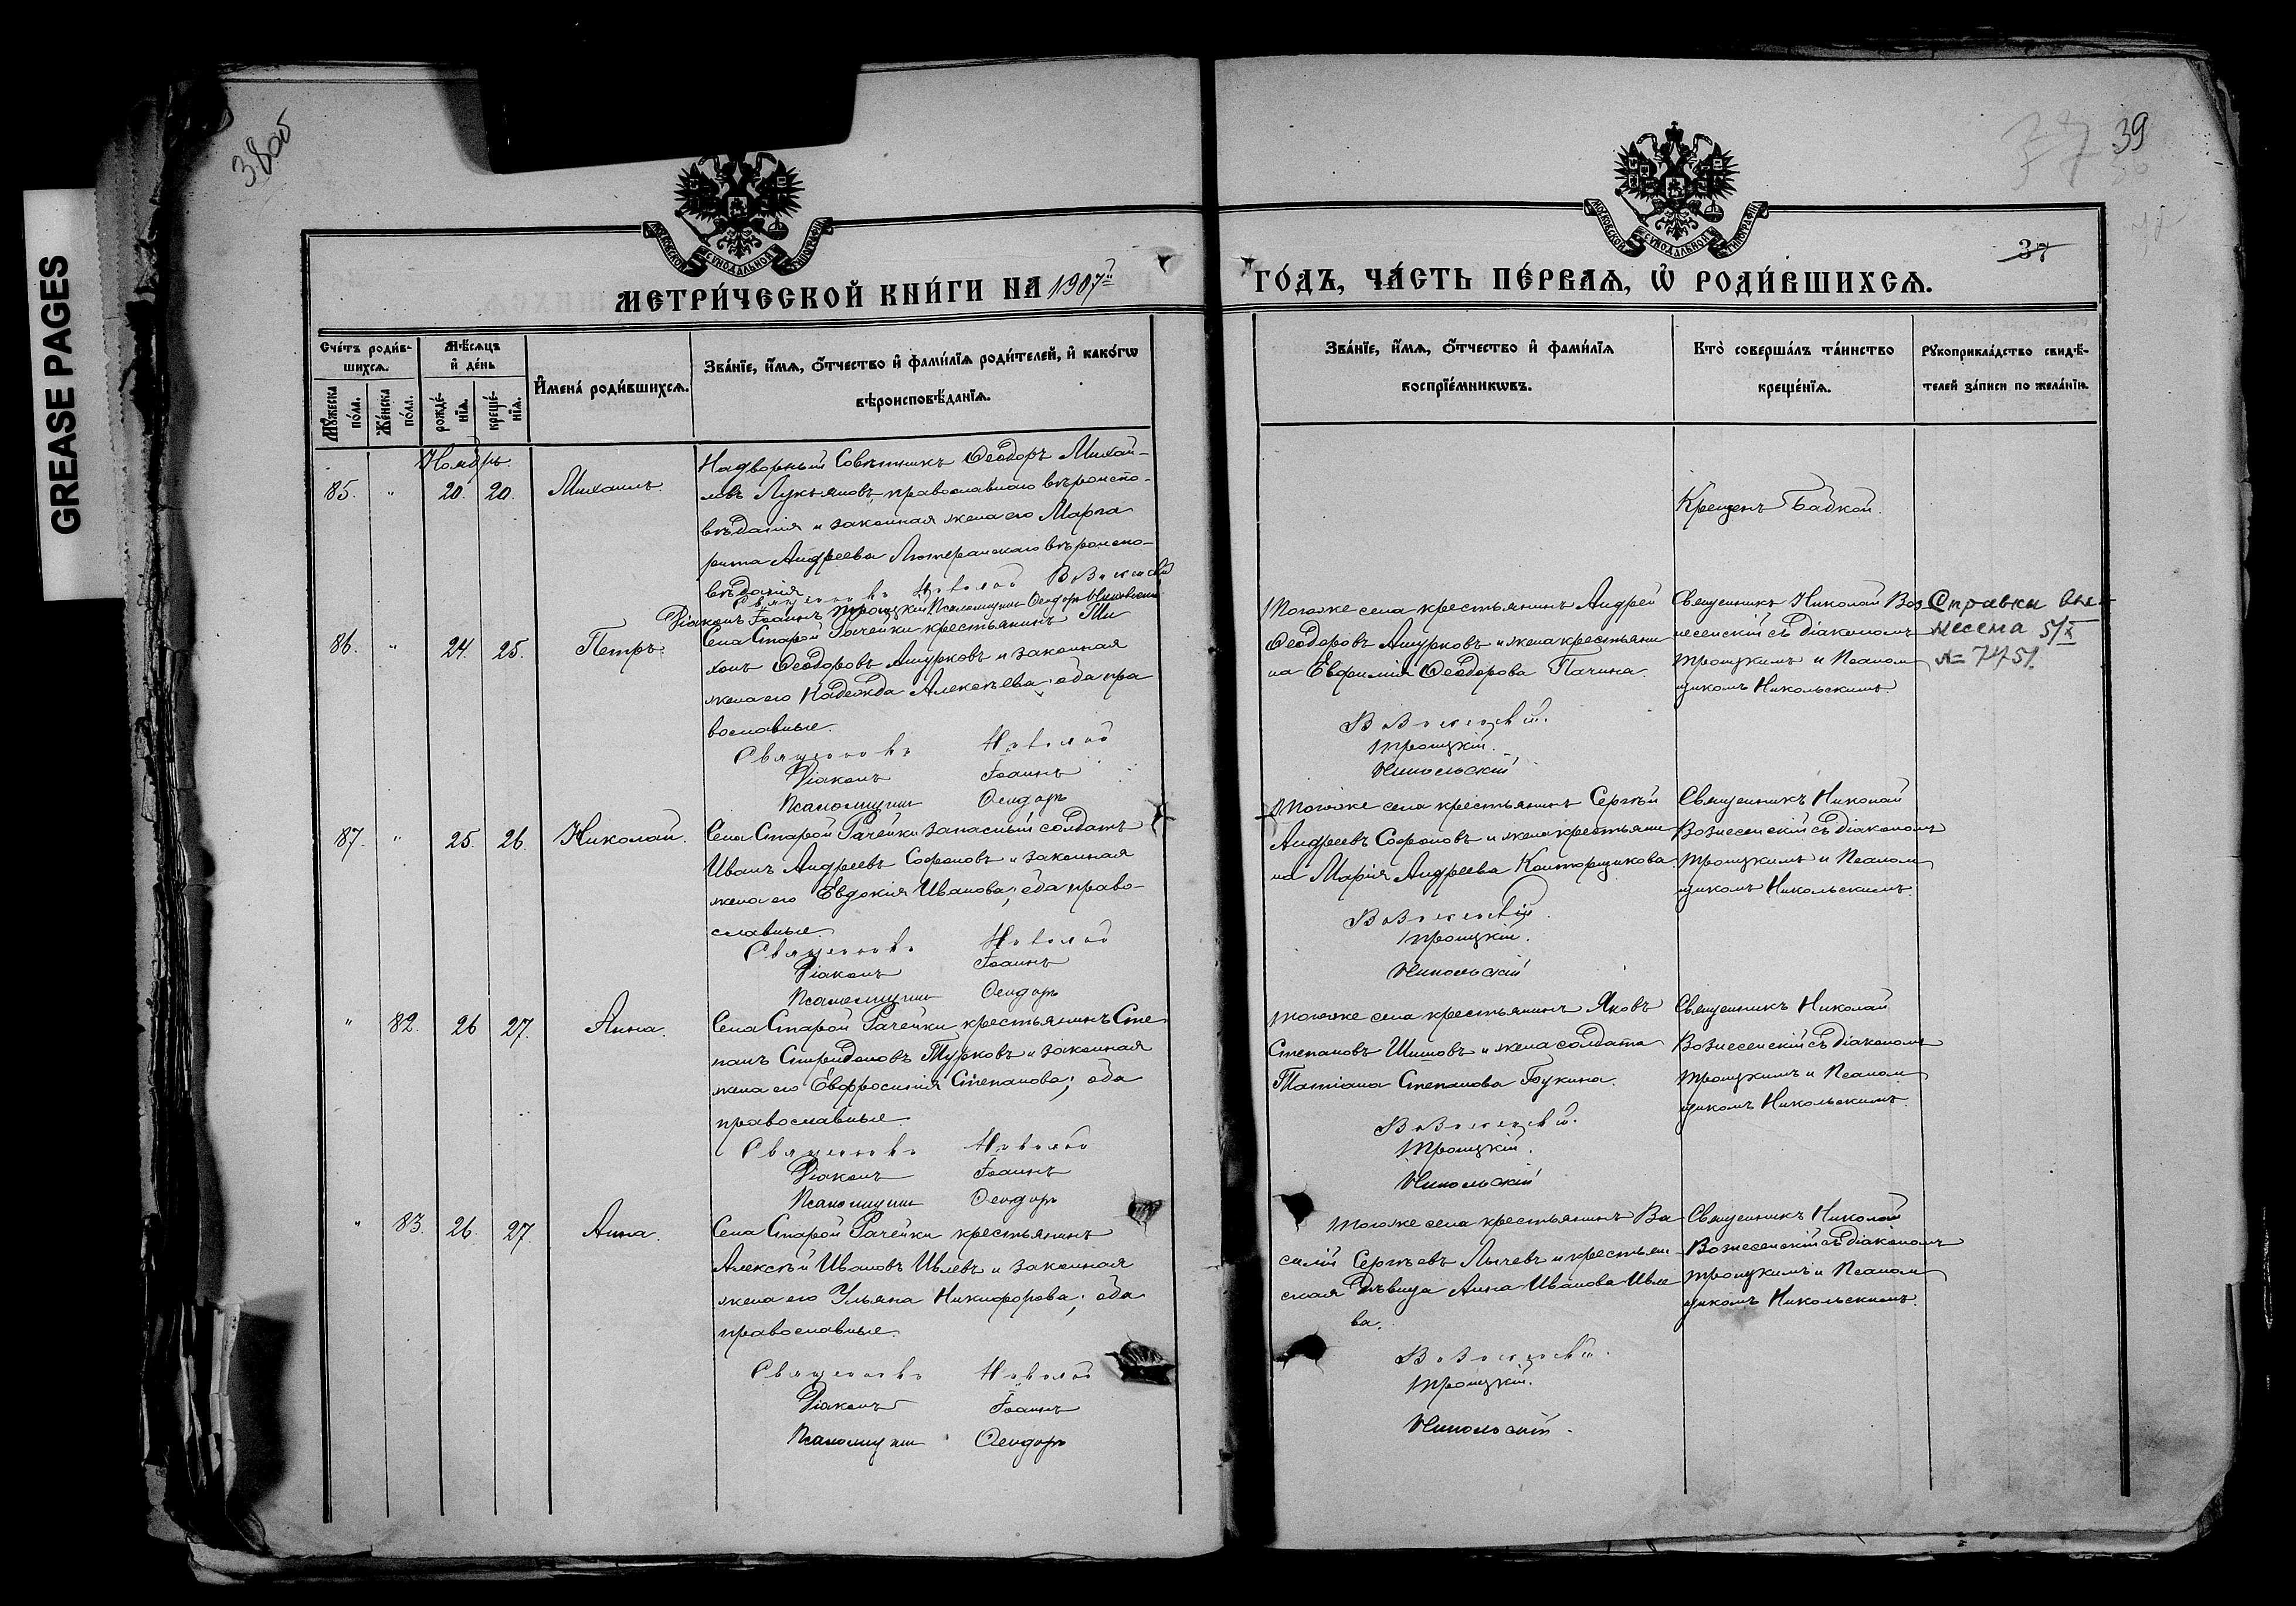 GREASE PAGES
38об
39
37
МОСКОВСКОЙ СѴНОДАЛЬНОЙ ТИПОГРАФІИ
МОСКОВСКОЙ СѴНОДАЛЬНОЙ ТИПОГРАФІИ
МЕТРИ́ЧЕСКОЙ КНИ́ГИ НА 1907й
ГО́ДЪ, ЧА́СТЬ ПЕ́РВАѦ, Ѡ҆ РОДИ́ВШИХСѦ.
Сче́тъ роди́в-
шихсѧ.
Мѣ́сѧцъ
и҆ де́нь
Мꙋ́жеска по́ла.
Же́нска по́ла.
рожде́-нїѧ.
креще́-нїѧ.
И҆мена̀ роди́вшихсѧ.
Зва́нїе, и҆́мѧ, ѻ҆́тчество и҆ фами́лїѧ роди́телей, и҆ како́гѡ
вѣроисповѣ́данїѧ.
Зва́нїе, и҆́мѧ, ѻ҆́тчество и҆ фами́лїѧ
воспрїе́мникѡвъ.
Кто̀ соверша́лъ та́инство
креще́нїѧ.
Рꙋкоприкла́дство свидѣ́-
телей за́писи по жела́нїю.
Ноябрь.
85. " 20. 20. Михаилъ.
Надворный Совѣтникъ Ѳеодоръ Михай-
ловъ Лукьяновъ, православнаго вѣроиспо-
вѣданія и законная жена его Марга
рита Андреева Лютеранскаго вѣроиспо-
вѣданія
Священникъ Николай Вознесенскій
Діаконъ Іоаннъ Троицкій Псаломщикъ Ѳеодоръ Никольскій
Крещенъ Бабкой.
86. " 24. 25. Петръ.
Села Старой Рачейки крестьянинъ Ти
хонъ Ѳеодоровъ Ашурковъ и законная
жена его Надежда Алексѣева; оба пра
вославные.
Священникъ Николай
Діаконъ Іоаннъ
Псаломщикъ Ѳеодоръ
Тогоже села крестьянинъ Андрей
Ѳеодоровъ Ашурковъ и жена крестьяни
на Евфимія Ѳеодорова Пачина.
Вознесенскій.
Троицкій.
Никольскій
Священникъ Николай Воз
несенскій съ діакономъ
Троицкимъ и Псалом
щикомъ Никольскимъ.
Справка вы-
несена 5/X
№ 7451.
87. " 25. 26. Николай.
Села Старой Рачейки запасный солдатъ
Иванъ Андреевъ Софоновъ и законная
жена его Евдокія Иванова; оба право-
славные.
Священникъ Николай
Діаконъ Іоаннъ
Псаломщикъ Ѳеодоръ
Тогоже села крестьянинъ Сергѣй
Андреевъ Софоновъ и жена крестьяни
на Марія Андреева Конторщикова
Вознесенскій.
Троицкій.
Никольскій
Священникъ Николай
Вознесенскій съ діакономъ
Троицкимъ и Псалом
щикомъ Никольскимъ.
" 82. 26 27. Анна.
Села Старой Рачейки крестьянинъ Сте
панъ Спиридоновъ Турковъ и законная
жена его Евфросинія Степанова; оба
православные.
Священникъ Николай
Діаконъ Іоаннъ
Псаломщикъ Ѳеодоръ
Тогоже села крестьянинъ Яковъ
Степановъ Шишовъ и жена солдата
Татіана Степанова Букина.
Вознесенскій.
Троицкій.
Никольскій
Священникъ Николай
Вознесенскій съ діакономъ
Троицкимъ и Псалом
щикомъ Никольскимъ.
" 83. 26. 27. Анна.
Села Старой Рачейки крестьянинъ
Алексѣй Ивановъ Ивлевъ и законная
жена его Ульяна Никифорова; оба
православные.
Священникъ Николай
Діаконъ Іоаннъ
Псаломщикъ Ѳеодоръ
Тогоже села крестьянинъ Ва
силій Сергѣевъ Лычевъ и крестьян
ская дѣвица Анна Иванова Ивле
ва.
Вознесенскій.
Троицкій.
Никольскій.
Священникъ Николай
Вознесенскій съ діакономъ
Троицкимъ и Псалом
щикомъ Никольскимъ.